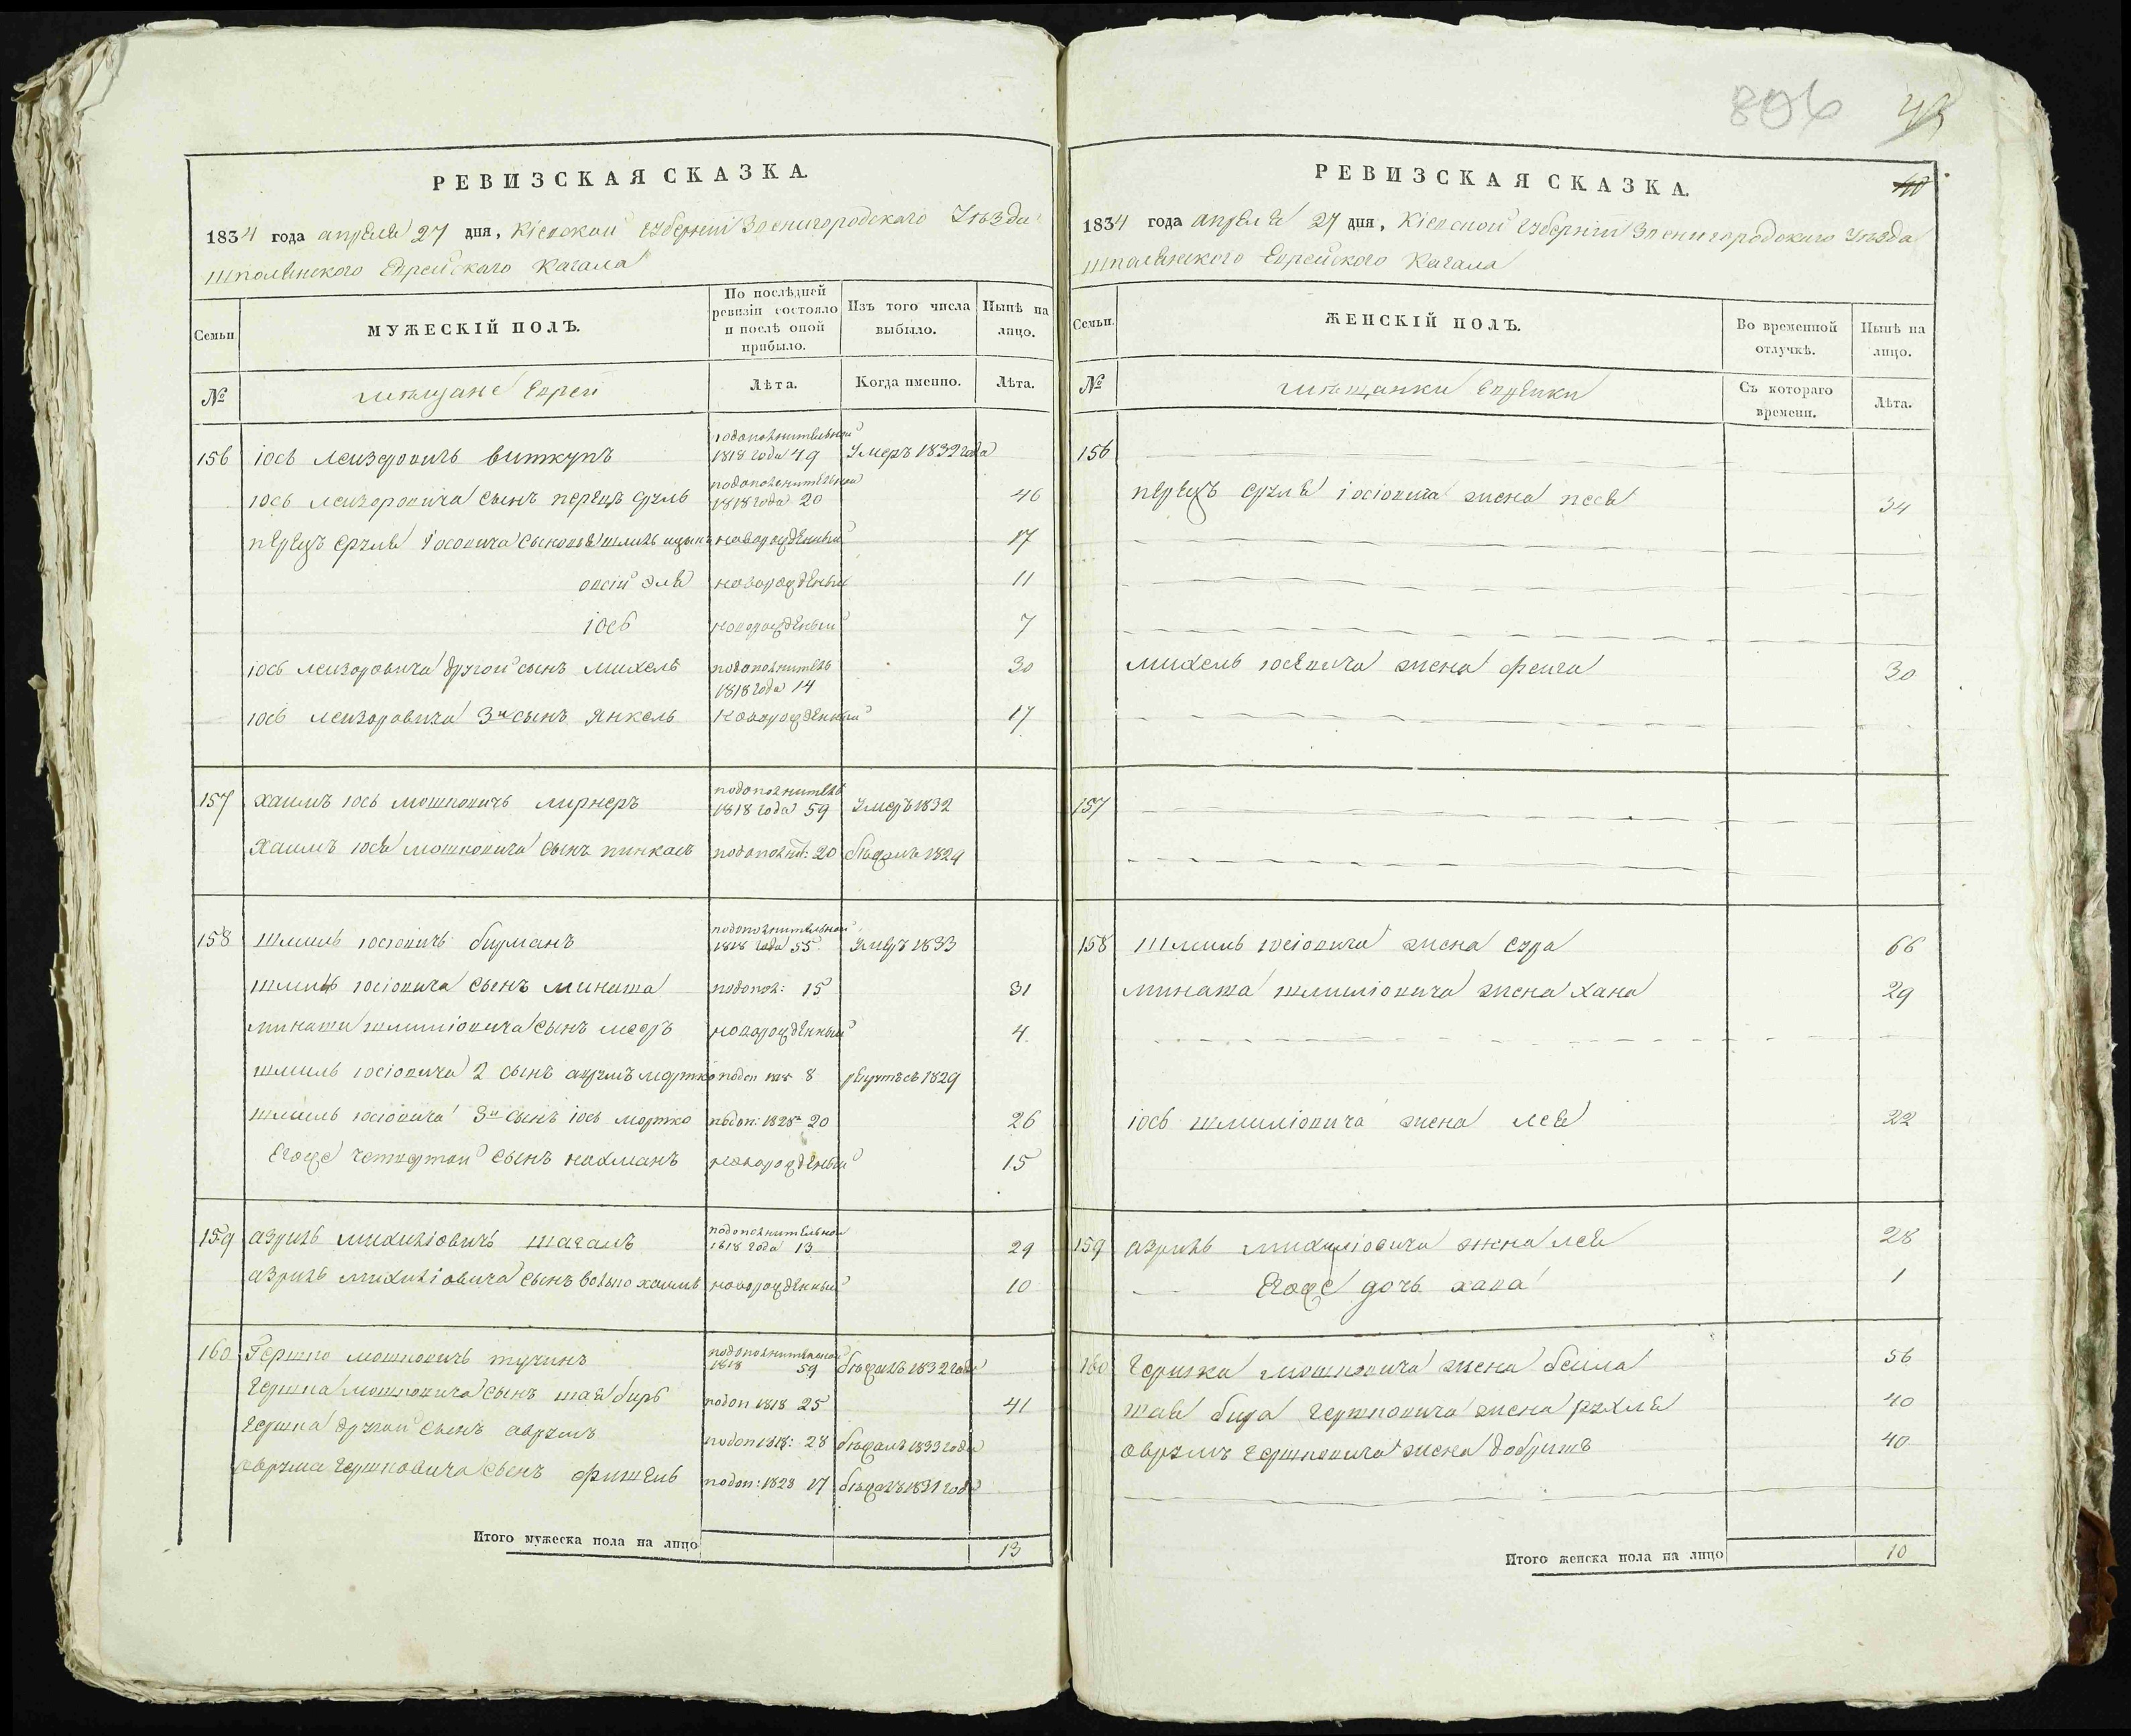 806
РЕВИЗСКАЯ СКАЗКА.
1834 года апреля 27 дня, Кіевской Губерніи Звенигородскаго Уѣзда
шполянского Еврейскаго Кагала
Семьи
МУЖЕСКІЙ ПОЛЪ.
По послѣдней ревизіи состояло и послѣ оной прибыло.
Изъ того числа выбыло.
Нынѣ на лицо.
№
мѣщане Евреи
Лѣта.
Когда именно.
Лѣта.
156 іось лейзеровичъ виткупъ подополнительной 1818 года 49 Умеръ 1832 года
іось лейзоровича сынъ перецъ сруль подополнительной 1818 года 20 46
перецъ сруля іосовича сыновья шмиль новорожденный 17
овсій эля новорожденный 11
іось новорожденный 7
іось лейзоровича другой сынъ михель подополнитель 1818 года 14 30
іось лейзоровича 3й сынъ янкель новорожденный 17
157 хаимъ іось мошковичъ лирнеръ подополнитель 1818 года 59 Умеръ 1832
хаимъ іося мошковича сынъ пинкасъ подополнит: 20 бѣжалъ 1829
158 шмиль іосіовичъ бирманъ подополнительной 1818 года 55 Умеръ 1833
шмиль іосіовича сынъ минаша подопол: 15 31
минаши шмиліовича сынъ меэръ новорожденный 4
шмиль іосіовича 2 сынъ аврумъ мортко подоп 1818 8 рекрутъ съ 1829
шмиль іосіовича 3й сынъ іось мортко подоп: 1828 20 26
Егоже четвертой сынъ нахманъ новорожденный 15
159 азриль михиліовичъ шагалъ подополнительной 1818 года 13 29
азриль михиліовича сынъ волько хаимъ новорожденный 10
160 Гершко мошковичъ тучинъ подополнительной 1818 59 бѣжалъ 1832 года
гершка мошковича сынъ шая биръ подоп 1818 25 41
гершка другой сынъ аврумъ подоп 1818: 28 бѣжалъ 1833 года
аврума гершковича сынъ фишель подоп: 1828 17 бѣжалъ 1831 года
Итого мужеска пола на лицо 13
РЕВИЗСКАЯ СКАЗКА.
1834 года апреля 27 дня, Кіевской Губерніи Звенигородскаго Уѣзда
шполянского Еврейского Кагала
Семьи.
ЖЕНСКІЙ ПОЛЪ.
Во временной отлучкѣ.
Нынѣ на лицо.
№
мѣщанки Еврейки
Съ котораго времени.
Лѣта.
156
перецъ сруля іосіовича жена песя 34
михель іосевича жена фейга 30
157
158 шмиль іосіовича жена сура 66
минаша шмиліовича жена хана 29
іось шмиліовича жена лея 22
159 азриль михиліовича жена лея 28
Егоже дочь хава 1
160 гершка мошковича жена бейла 56
шая бира гершковича жена рухля 40
аврумъ гершковича жена добришъ 40
Итого женска пола на лицо 10